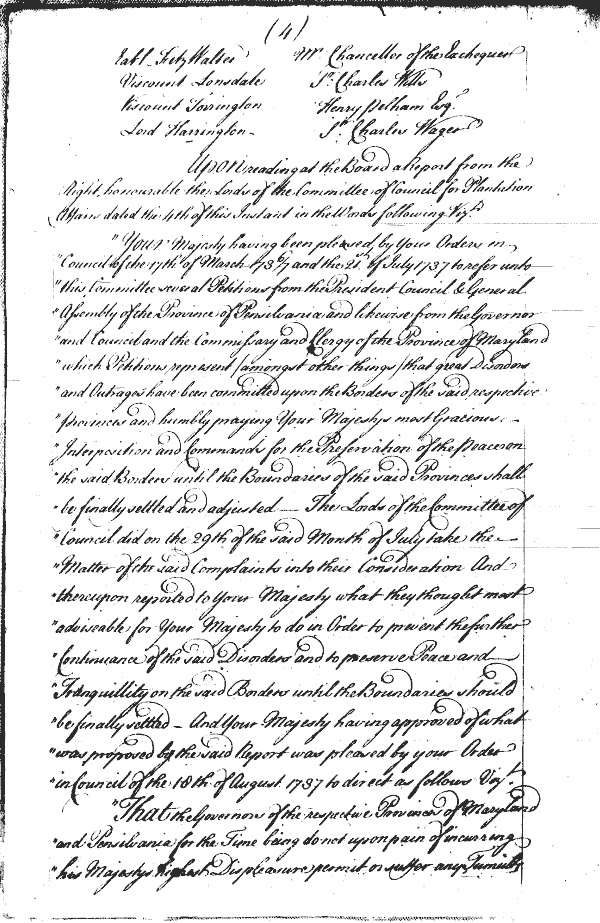 (4)
Earl Fitz Walter Mr. Chancellor of the Exchequer
Viscount Lonsdale Sr. Charles Wills
Viscount Torrington Henry Pelham Esqr.
Lord Harrington Sr. Charles Wager
Upon reading at the Board a Report from the
Right honourable the Lords of the Committee of Council for Plantation
Affairs dated the 4th of this Instant in the Words following Vizt.
"Your Majesty having been pleased, by Your Orders in
"Council of the 17th of March 1736/7 and the 21st of July 1737 to refer unto
"this Committee several Petitions from the President Council & General
"Assembly of the Province of Pensilvania and likewise from the Governor
"and Council and the Commissary and Clergy of the Province of Maryland
"which Petitions represent /amongst other things/ that great Disorders
"and Outrages have been committed upon the Borders of the said respective
"Provinces and humbly praying Your Majestys most Gracious
"Interposition and Commands for the Preservation of the Peace on
"the said Borders until the Boundaries of the said Provinces shall
"be finally settled and adjusted — The Lords of the Committee of
"Council did on the 29th of the said Month of July take the
"Matter of the said Complaints into their Consideration And
"thereupon reported to Your Majesty what they thought most
"adviseable for Your Majesty to do in Order to prevent the further
"Continuance of the said Disorders and to preserve Peace and
"Tranquillity on the said Borders until the Boundaries should
"be finally settled — And Your Majesty having approved of what
"was proposed by the said Report was pleased by your Order
"in Council of the 18th of August 1737 to direct as follows Vizt.
"That the Governors of the respective Provinces of Maryland
"and Pensilvania for the Time being do not upon pain of incurring
"his Majestys highest Displeasure permit or suffer any Tumults